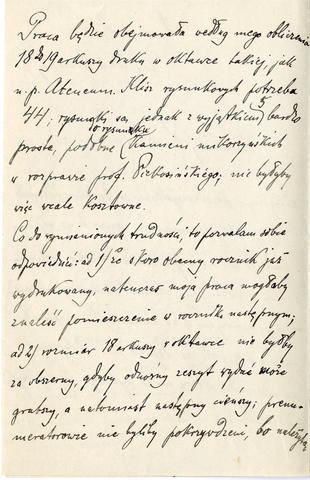 Praca będzie obejmowała według mego obliczenia
18 do 19 arkuszy druku w oktawce takiej, jak
n.p. Ateneum. Klisz rysunkowych potrzeba
44; rysunki są jednak z wyjątkiem 5 bardzo
proste, podobne do rysunku Kamieni mikorzyńskich
w rozprawie prof. Piekosińskiego; nie byłyby
więc wcale kosztowne.
Co do wymienionych trudności, to pozwalam sobie
odpowiedzieć: ad 1) że skoro obecny rocznik już
wydrukowany, natenczas moja praca mogłaby
znaleść pomieszczenie w roczniku następnym;
ad 2) rozmiar 18 arkuszy w oktawce nie byłby
za obszerny, gdyby odnośny zeszyt wydać może
grubszy, a natomiast następny cieńszy; prenu-
meratorowie nie byliby pokrzywdzeni, bo należytą